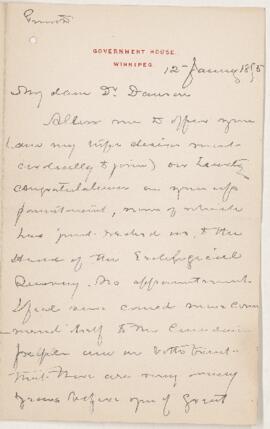 GOVERNMENT HOUSE.
WINNIPEG.
12 January 1895
My dear Dr Dawson
Allow me to offer you
(and my wife desires most
cordially to join) our hearty
congratulations on your ap-
pointment, news of which
has just reached us, to the
Head of the Geological
Survey. No appointment
I feel sure could more com-
mend itself to the Canadian
people and we both trust
that there are very many
years before you of great